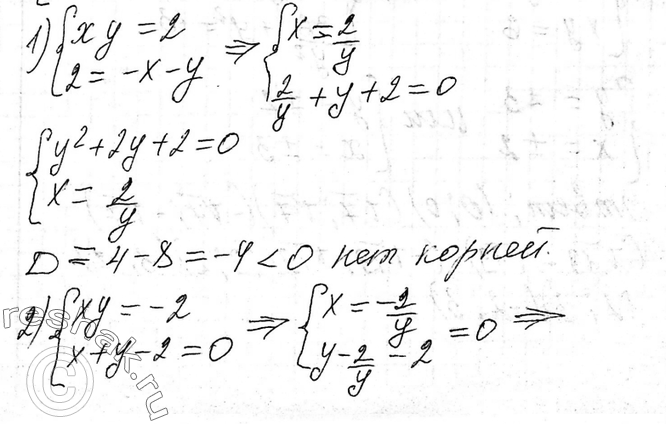 1) { xy = 2 ⇒ { x = 2/y
2 = -x - y    2/y + y + 2 = 0
{ y² + 2y + 2 = 0
x = 2/y
D = 4 - 8 = -4 < 0 нет корней.
2) { xy = -2 ⇒ { x = -2/y ⇒
x + y - 2 = 0    y - 2/y - 2 = 0
reshak.ru